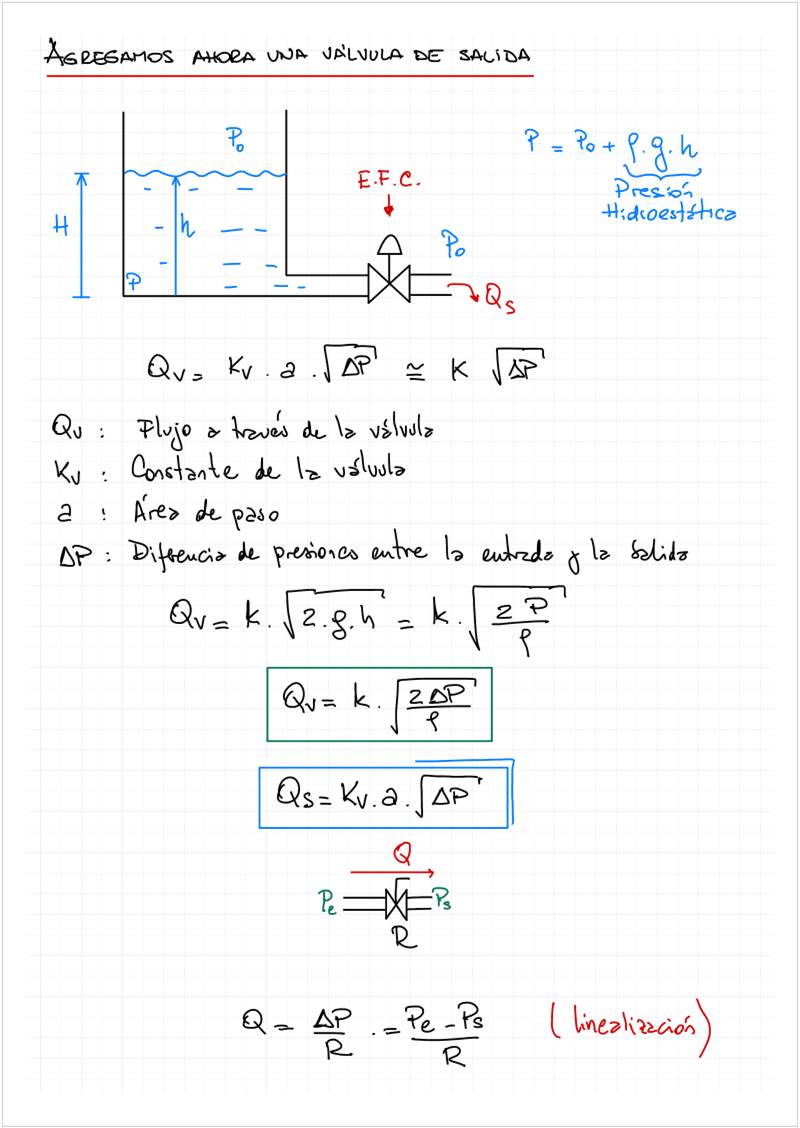 AGREGAMOS AHORA UNA VÁLVULA DE SALIDA
P₀
P = P₀ + ρ.g.h
Presión
Hidroestática
E.F.C.
H
h
P₀
P
Qs
Qv = Kv . a . √ΔP ≅ K √ΔP
Qv : Flujo a través de la válvula
Kv : Constante de la válvula
a : Área de paso
ΔP : Diferencia de presiones entre la entrada y la salida
Qv = k . √2.g.h = k . √(2P/ρ)
Qv = k . √(2ΔP/ρ)
Qs = Kv . a . √ΔP
Q
Pe
Ps
R
Q = ΔP/R . = (Pe - Ps)/R (linealización)